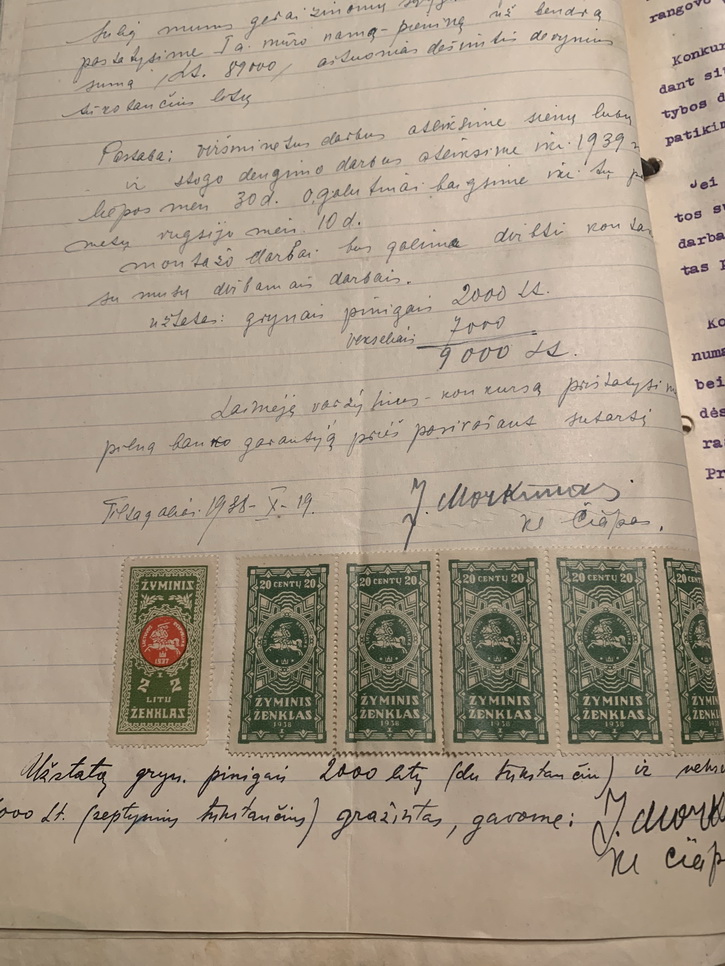 sulig mums gerai žinomų
pastatysime Ia. mūro namą-pieninę už bendrą
sumą, Lt. 89000, aštuonias dešimtis devynius
tūkstančius litų
Pastaba: viršminėtus darbus atliksime sienų lubų
ir stogo dengimo darbus atliksime iki 1939 m
liepos mėn 30 d. Ogalutinai baigsime iki tų pa
metų rugsėjo mėn. 10 d.
montažo darbai bus galima dvibti kontak
su mūsų dirbamais darbais.
užstatas: grynais pinigais 2000 Lt.
vekseliais 7000
9000 Lt.
Laimėję varžytines-konkursą pristatysim
pilną banko garantiją prieš pasirašant sutartį
1938-X-19.
J. Morkūnas
K. Čiapas.
ŽYMINIS
LIETUVOS RESPUBLIKA
1937
2 2
LITU
ŽENKLAS
20 CENTŲ 20
ŽYMINIS
ŽENKLAS
1938
20 CENTŲ 20
ŽYMINIS
ŽENKLAS
1938
20 CENTŲ 20
ŽYMINIS
ŽENKLAS
1938
20 CENTŲ 20
ŽYMINIS
ŽENKLAS
1938
20 CEN
ŽYMI
ŽENK
193
Užstatą gryn. pinigais 2000 litų (du tūkstančiu) ir veks
000 Lt. (septynius tūkstančius) gražintas, gavome:
J. Mork
K. Čiap
rangovo
Konkur
dant sit
tybos d
patikim
Jei
tos su
darba
tas p
Ko
numa
bei
dės
ra
Pr